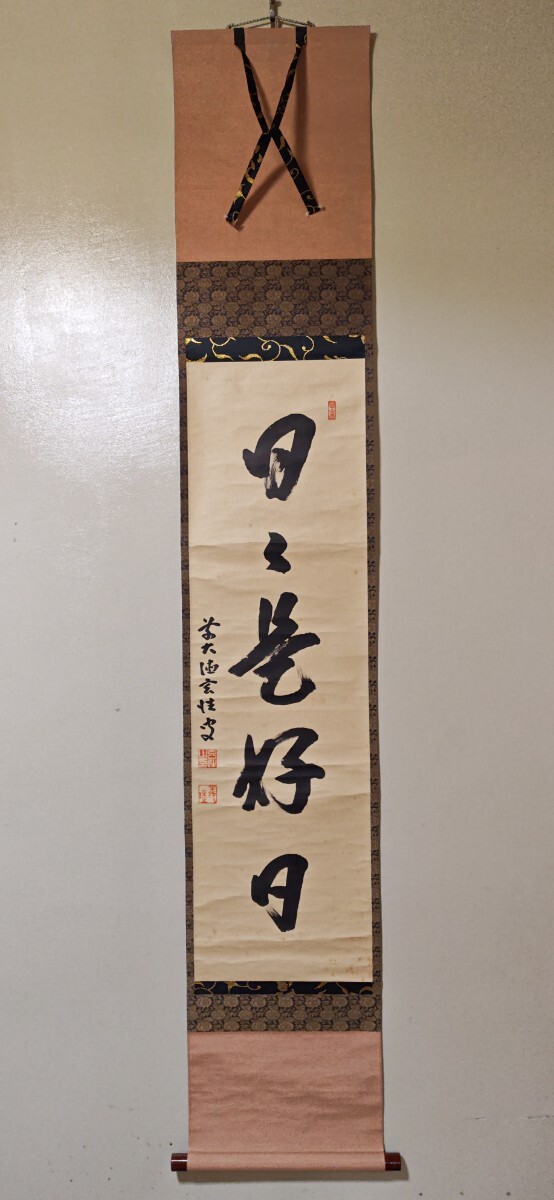 日々是好日
前大徳玄性叟